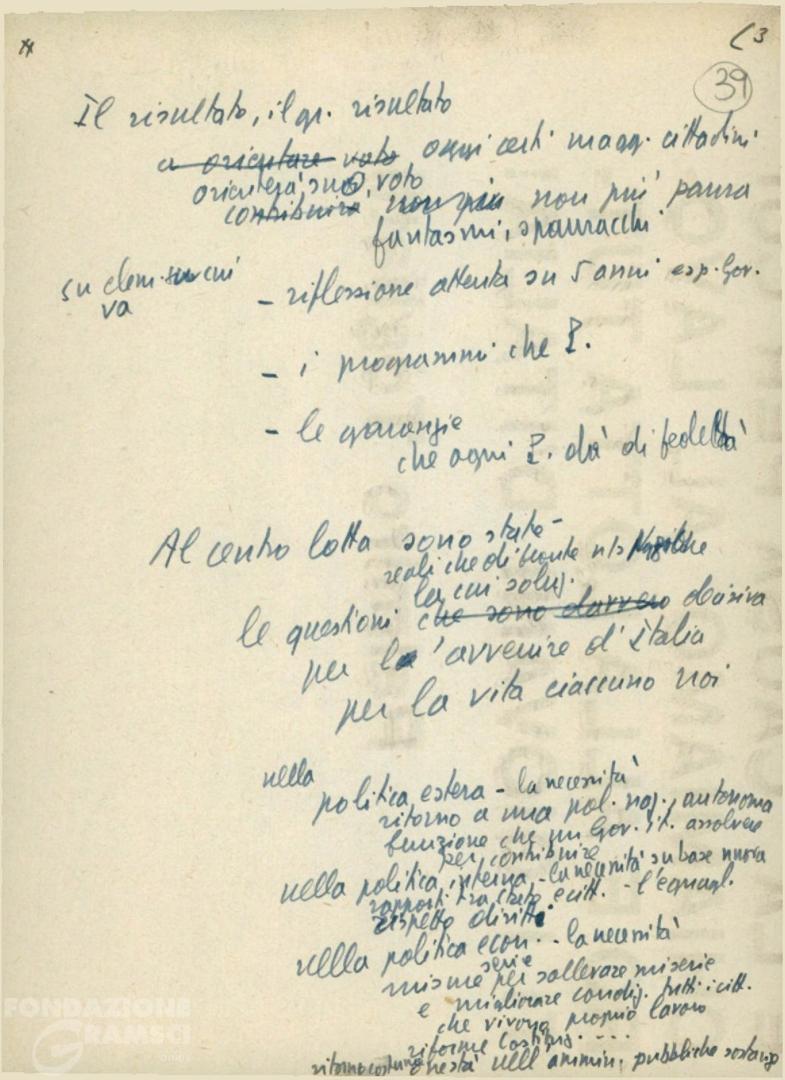 (3
39
Il risultato, il gr. risultato
a orientare voto oggi certi magg. cittadini
orienterà suo voto
contribuirà non più non più paura
fantasmi, spauracchi
su elem. su cui
va
- riflessione attenta su 5 anni esp. Gov.
- i programmi che P.
- le garanzie
che ogni P. dà di fedeltà
Al centro lotta sono state -
reali che di fronte
la cui soluz.
le questioni che sono davvero decisiva
per l'avvenire d'Italia
per la vita ciascuno noi
nella
politica estera - la necessità
ritorno a una pol. naz., autonoma
funzione che un Gov. it. assolvere
per contribuire
nella politica interna - la necessità su base nuova
rapporti tra stato e citt. - l'eguagl.
rispetto diritti
nella politica econ. - la necessità
serie
misure per sollevare miserie
e migliorare condiz. tutti i citt.
che vivono proprio lavoro
riforme costituz. - - -
ritorno costume onestà nell'ammin. pubbliche
FONDAZIONE
GRAMSCI
onlus